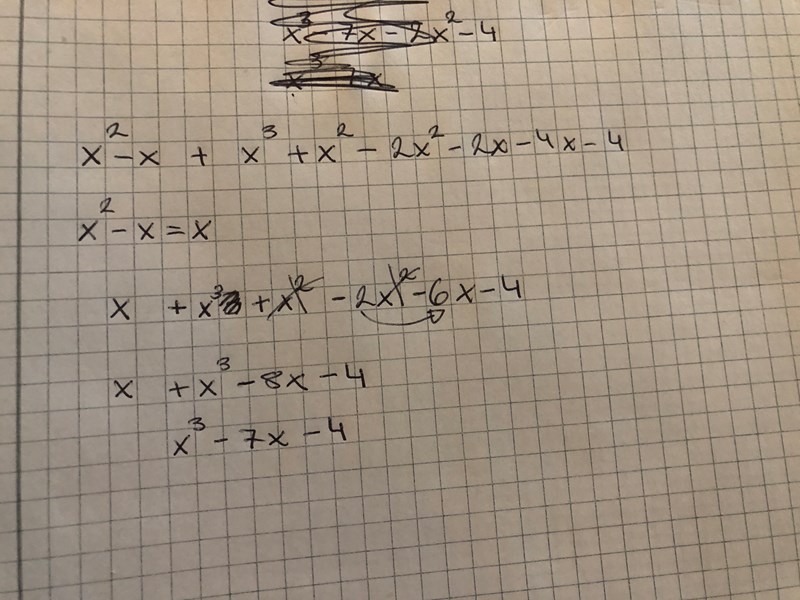 x³ - 7x - 2x² - 4
x² - x + x³ + x² - 2x² - 2x - 4x - 4
x² - x = x
x + x³ + x² - 2x² - 6x - 4
x + x³ - 8x - 4
x³ - 7x - 4